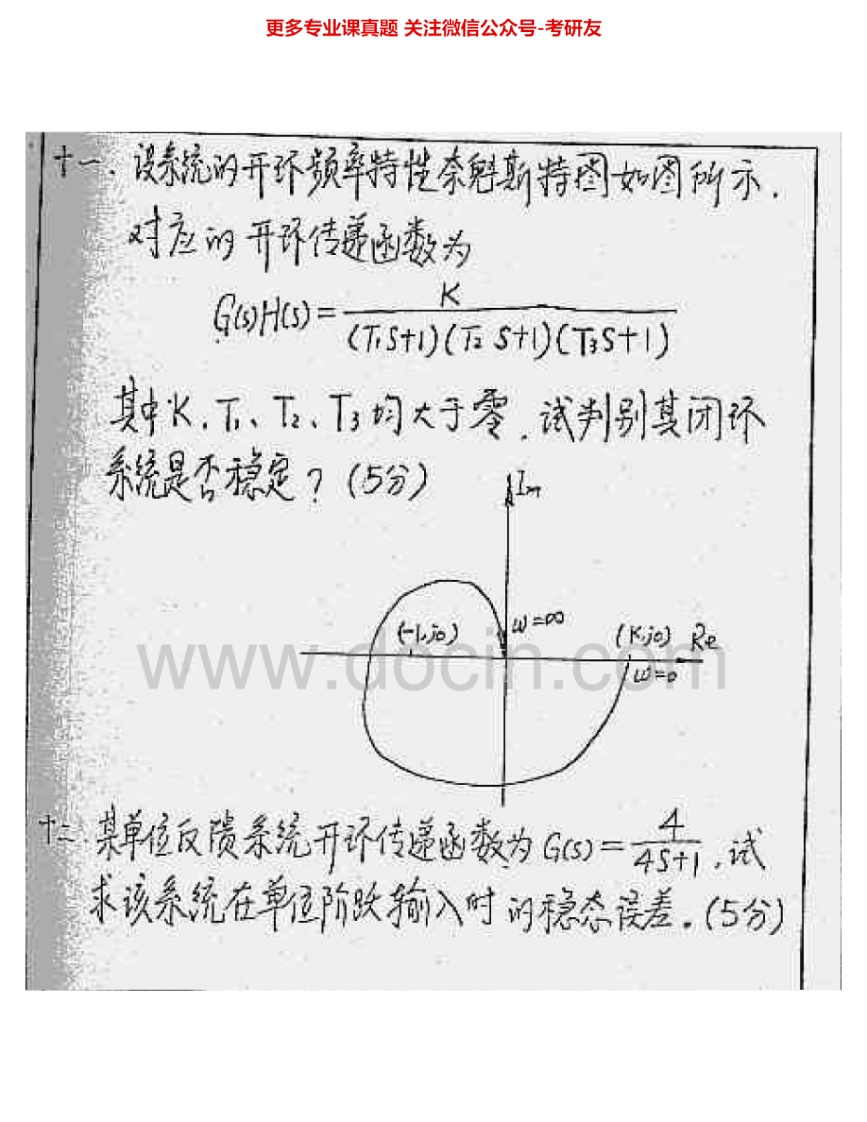 更多专业课真题 关注微信公众号-考研友
十一、设系统的开环频率特性奈魁斯特图如图所示.
对应的开环传递函数为
G(s)H(s)=K/((T₁S+1)(T₂S+1)(T₃S+1))
其中K、T₁、T₂、T₃均大于零,试判别其闭环
系统是否稳定?(5分)
Im
(-1,j0)
ω=∞
(K,j0)
Re
ω=0
www.docin.com
十二.某单位反馈系统开环传递函数为G(s)=4/(4S+1),试
求该系统在单位阶跃输入时的稳态误差.(5分)